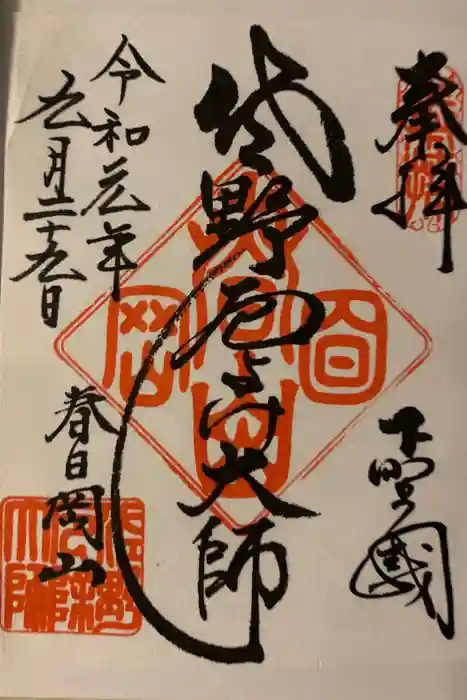 奉拝
下野國
佐野厄よけ大師
令和元年
九月二十九日
春日岡山